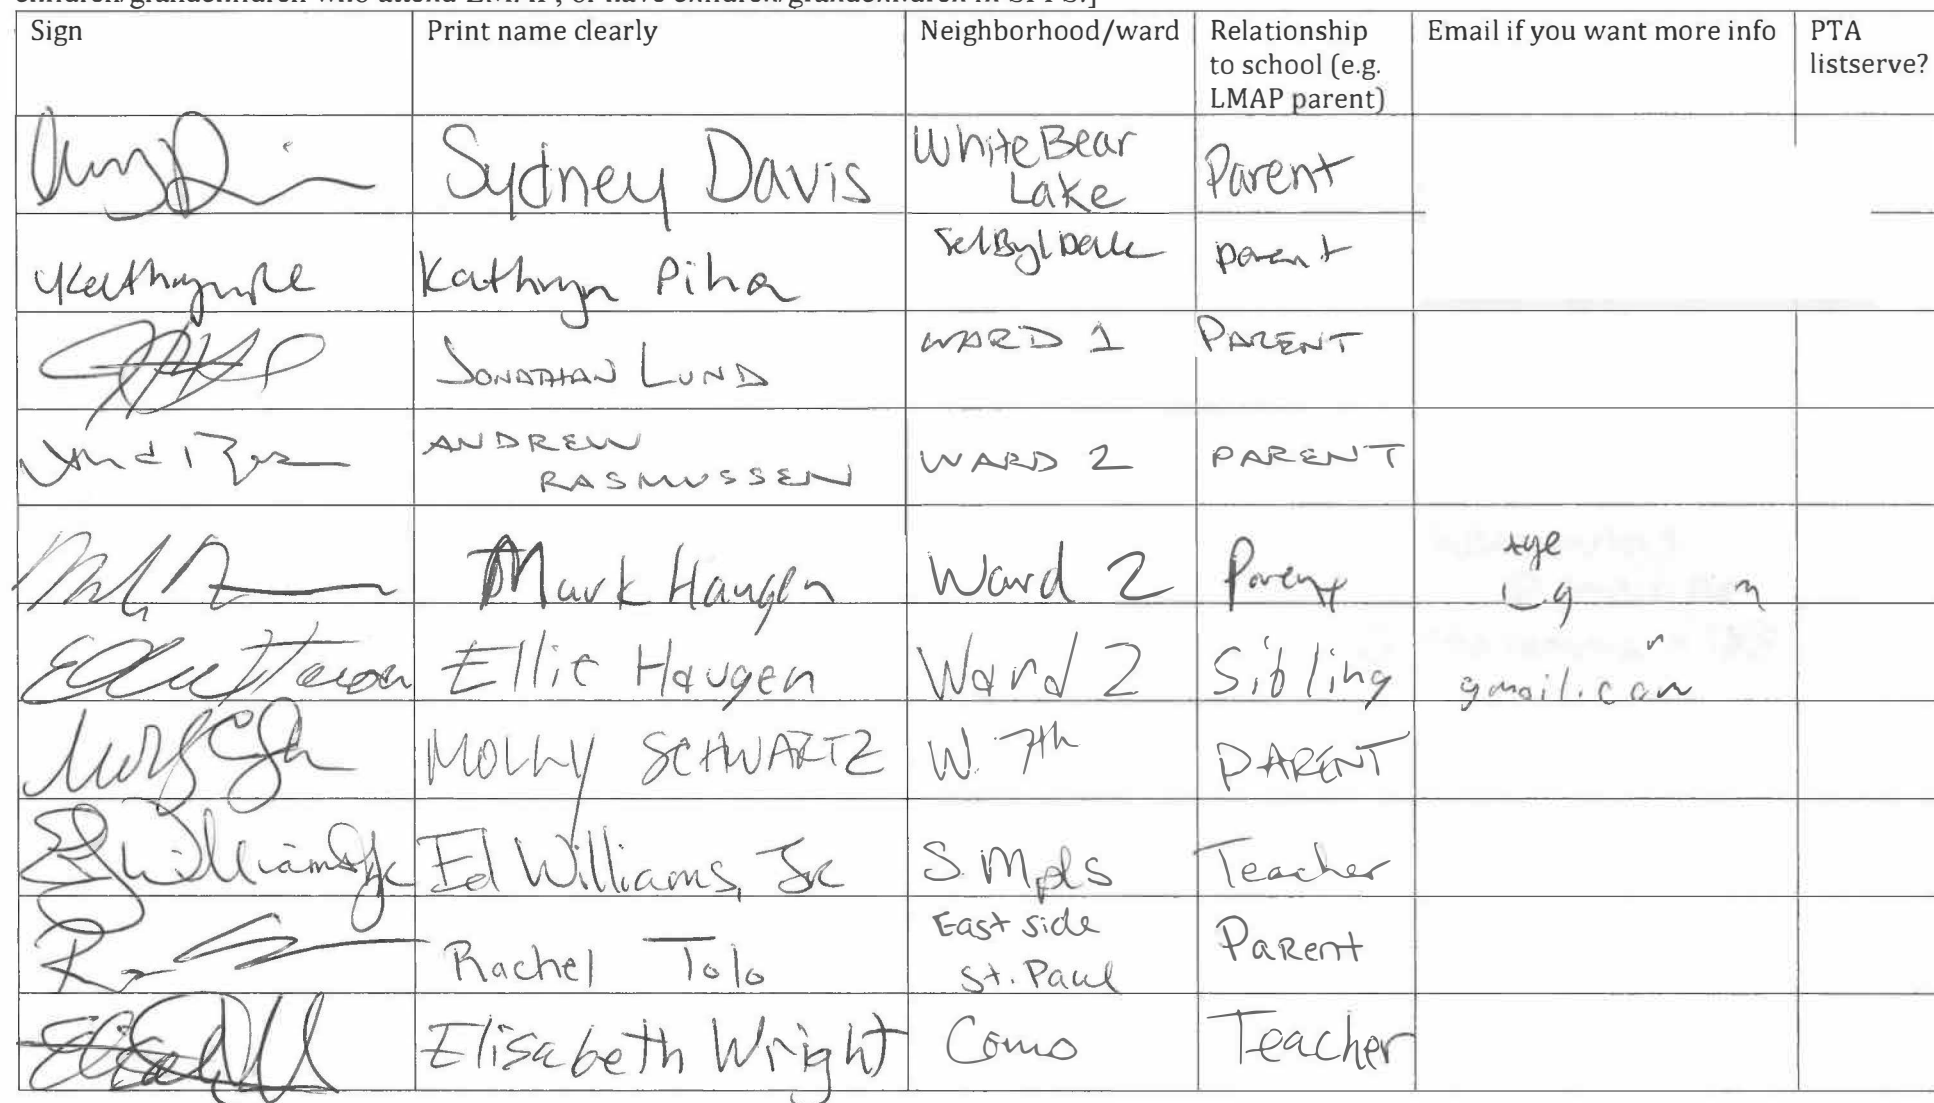 Sign
Print name clearly
Neighborhood/ward
Relationship
to school (e.g.
LMAP parent)
Email if you want more info
PTA
listserve?
Sydney Davis
White Bear
Lake
Parent
Kathryn Piha
parent
JONATHAN LUND
WARD 1
PARENT
ANDREW
RASMUSSEN
WARD 2
PARENT
Mark Haugen
Ward 2
Parent
Ellie Haugen
Ward 2
Sibling
gmail.com
MOLLY SCHWARTZ
W. 7th
PARENT
Ed Williams, Jr
S. Mpls
Teacher
Rachel Tolo
East side
St. Paul
Parent
Elisabeth Wright
Como
Teacher